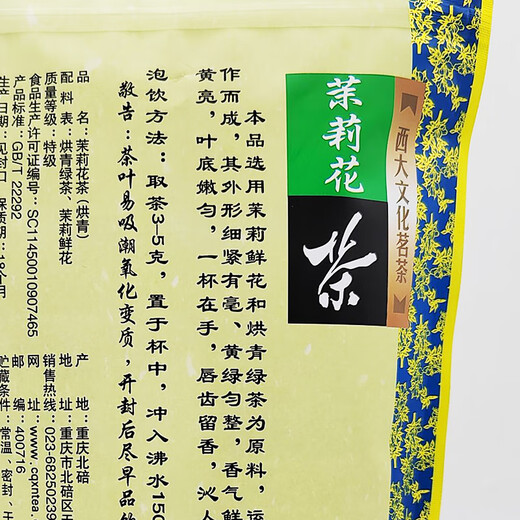 西大文化茗茶
茉莉花
茶
本品选用茉莉鲜花和烘青绿茶为原料，运
作而成，其外形细紧有毫、黄绿匀整，香气鲜
黄亮，叶底嫩匀，一杯在手，唇齿留香，沁人
泡饮方法：取茶3-5克，置于杯中，冲入沸水150
敬告：茶叶易吸潮氧化变质，开封后尽早品饮
品 名：茉莉花茶（烘青）
配 料 表：烘青绿茶、茉莉鲜花
质量等级：特级
食品生产许可证编号：SC11450010907465
产品标准：GB/T 22292
生产日期：见封口 保质期：18个月
产 地：重庆北碚
地 址：重庆市北碚区天
销售热线：023-68250239
网 址：www.cqxntea.
邮 编：400716
贮藏条件：常温、密封、干